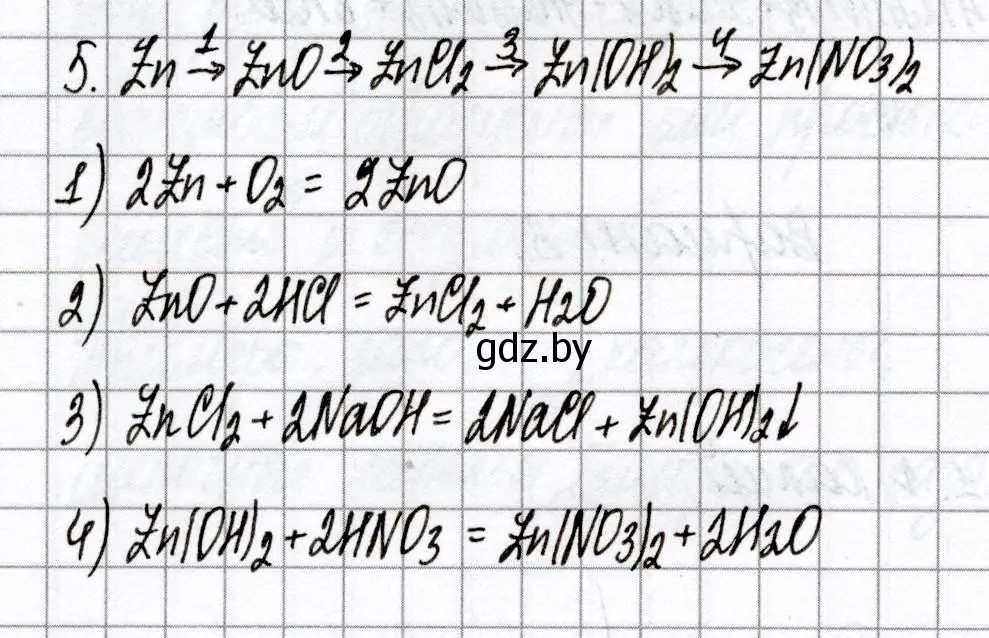 5. Zn →¹ ZnO →² ZnCl₂ →³ Zn(OH)₂ →⁴ Zn(NO₃)₂
1) 2Zn + O₂ = 2ZnO
2) ZnO + 2HCl = ZnCl₂ + H₂O
gdz.by
3) ZnCl₂ + 2NaOH = 2NaCl + Zn(OH)₂↓
4) Zn(OH)₂ + 2HNO₃ = Zn(NO₃)₂ + 2H₂O